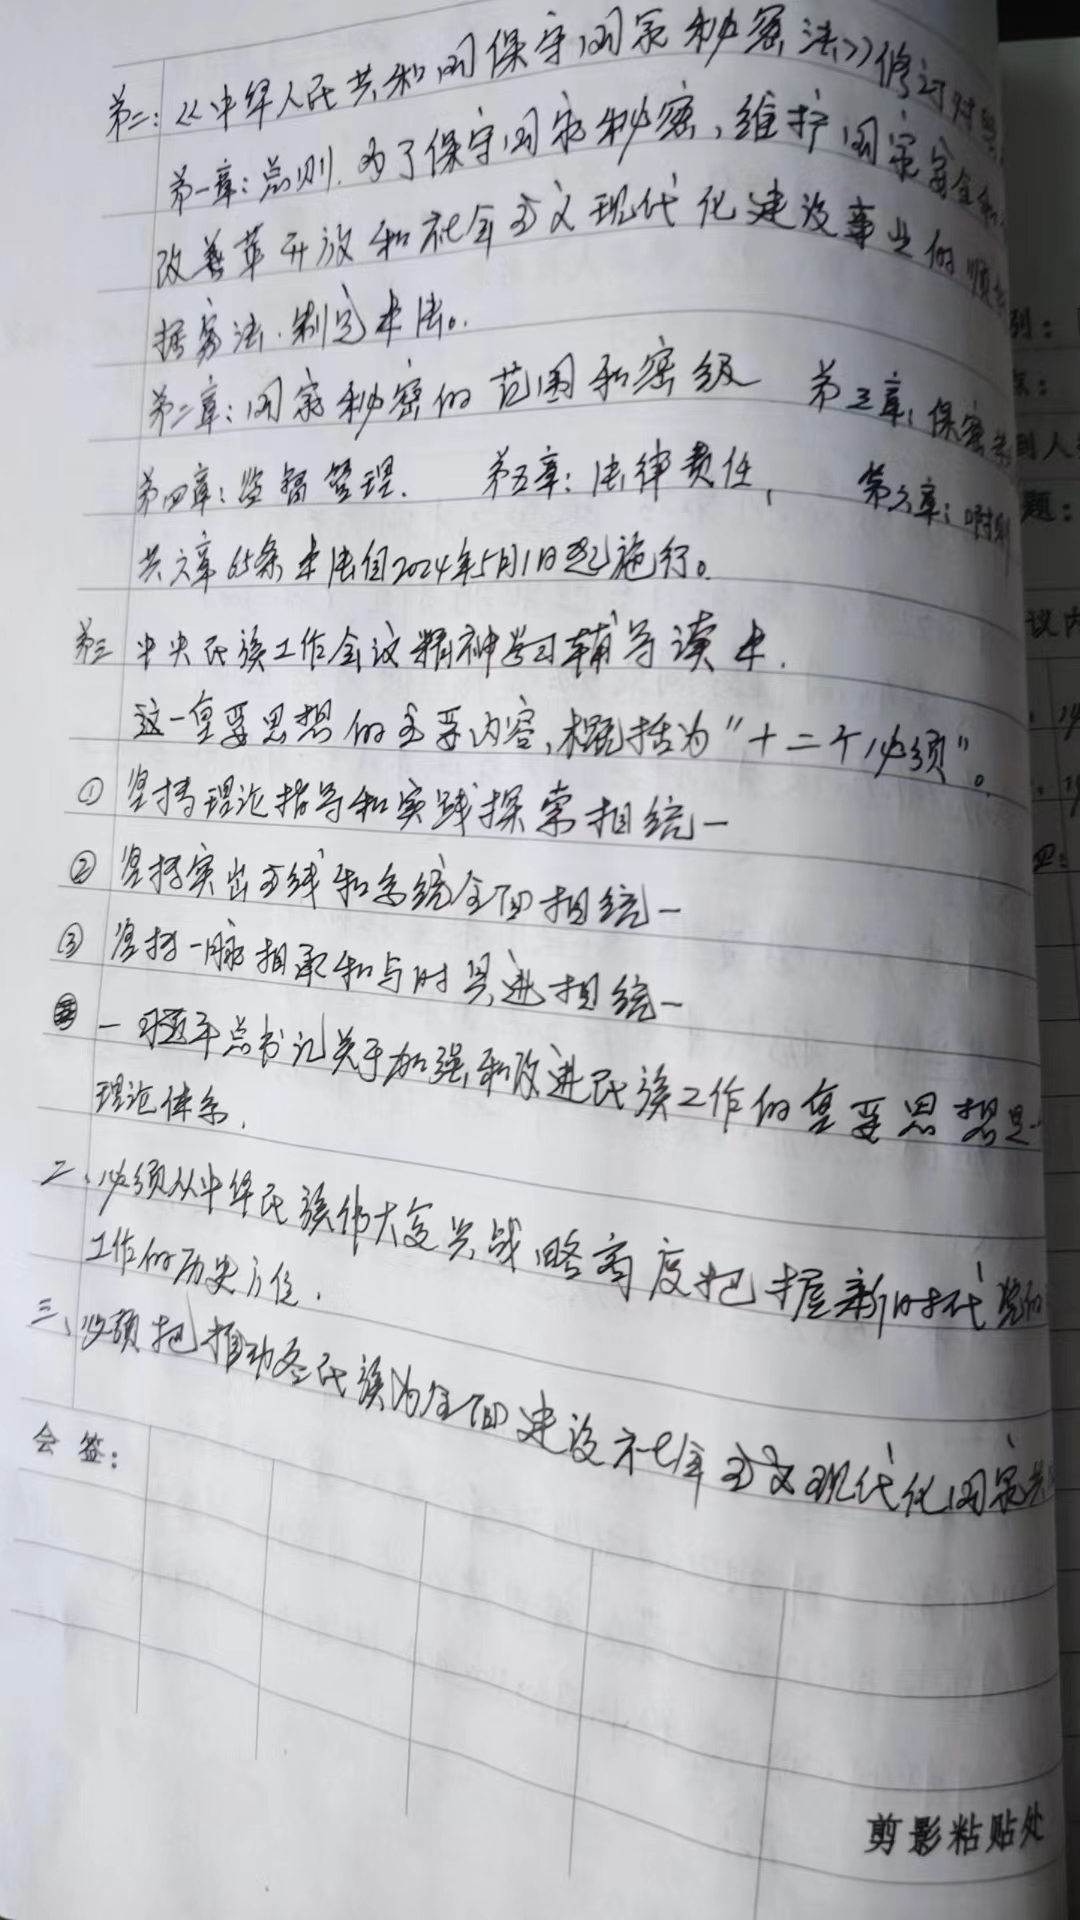 第二:《中华人民共和国保守国家秘密法》修订对照
第一章:总则.为了保守国家秘密,维护国家安全和
改善革开放和社会主义现代化建设事业的顺
据宪法.制定本法。
第二章:国家秘密的范围和密级 第三章:保密
第四章:监督管理. 第五章:法律责任, 第六章:附则
共六章65条本法自2024年5月1日起施行。
第三 中央民族工作会议精神学习辅导读本.
这一重要思想的主要内容,概括为"十二个必须"。
① 坚持理论指导和实践探索相统一
② 坚持突出主线和系统全面相统一
③ 坚持一脉相承和与时俱进相统一
一 习近平总书记关于加强和改进民族工作的重要思想是
理论体系.
二、必须从中华民族伟大复兴战略高度把握新时代党的
工作的历史方位.
三、必须把推动各民族为全面建设社会主义现代化国家共
会签:
剪影粘贴处
别:
到人
题:
议内